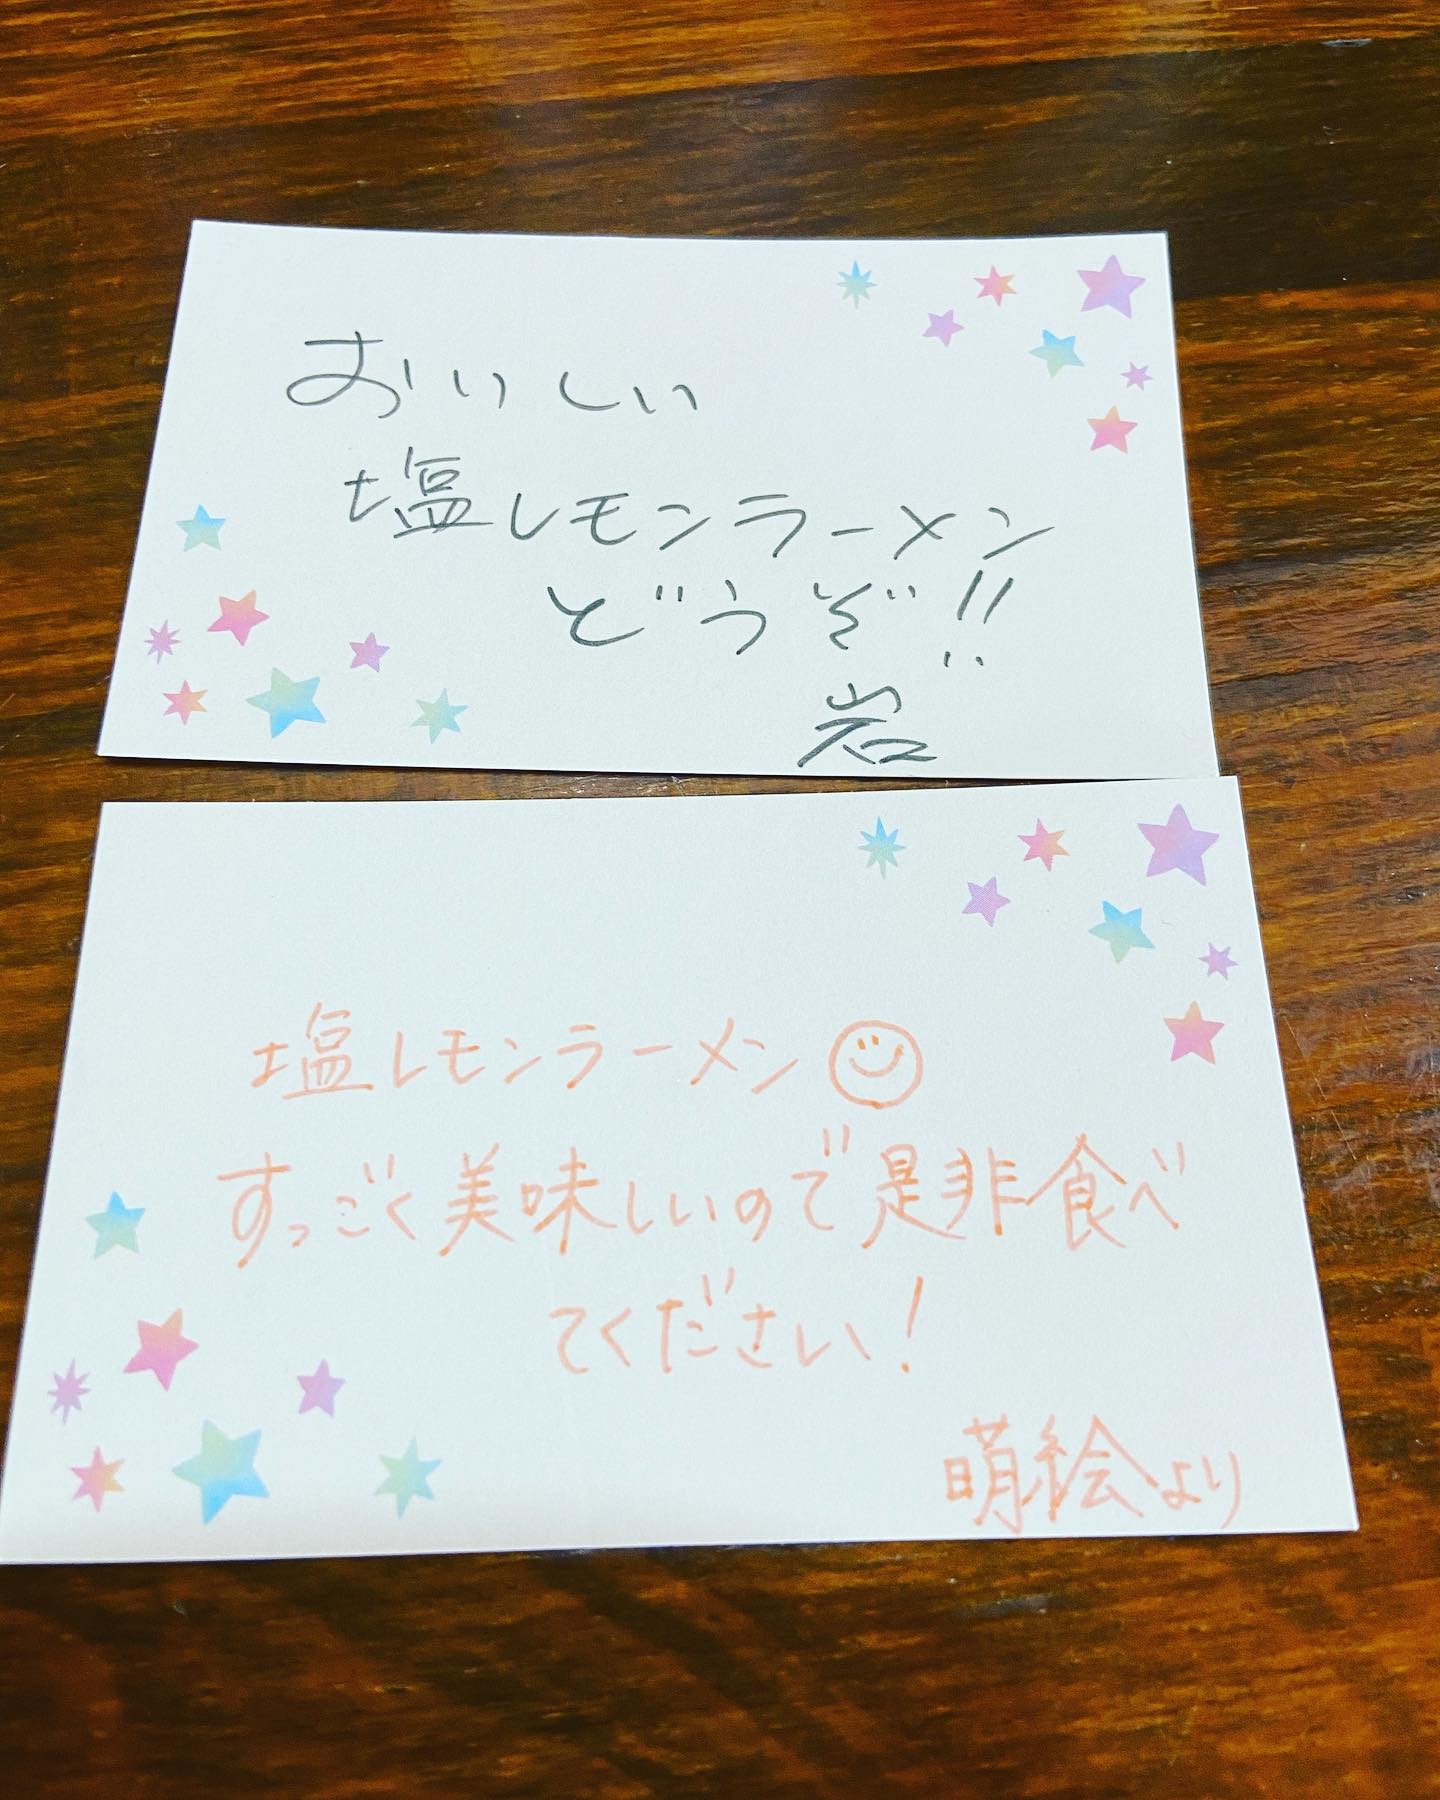 おいしい
塩レモンラーメン
どうぞ!!
岩
塩レモンラーメン
すっごく美味しいので是非食べ
てください!
萌絵より